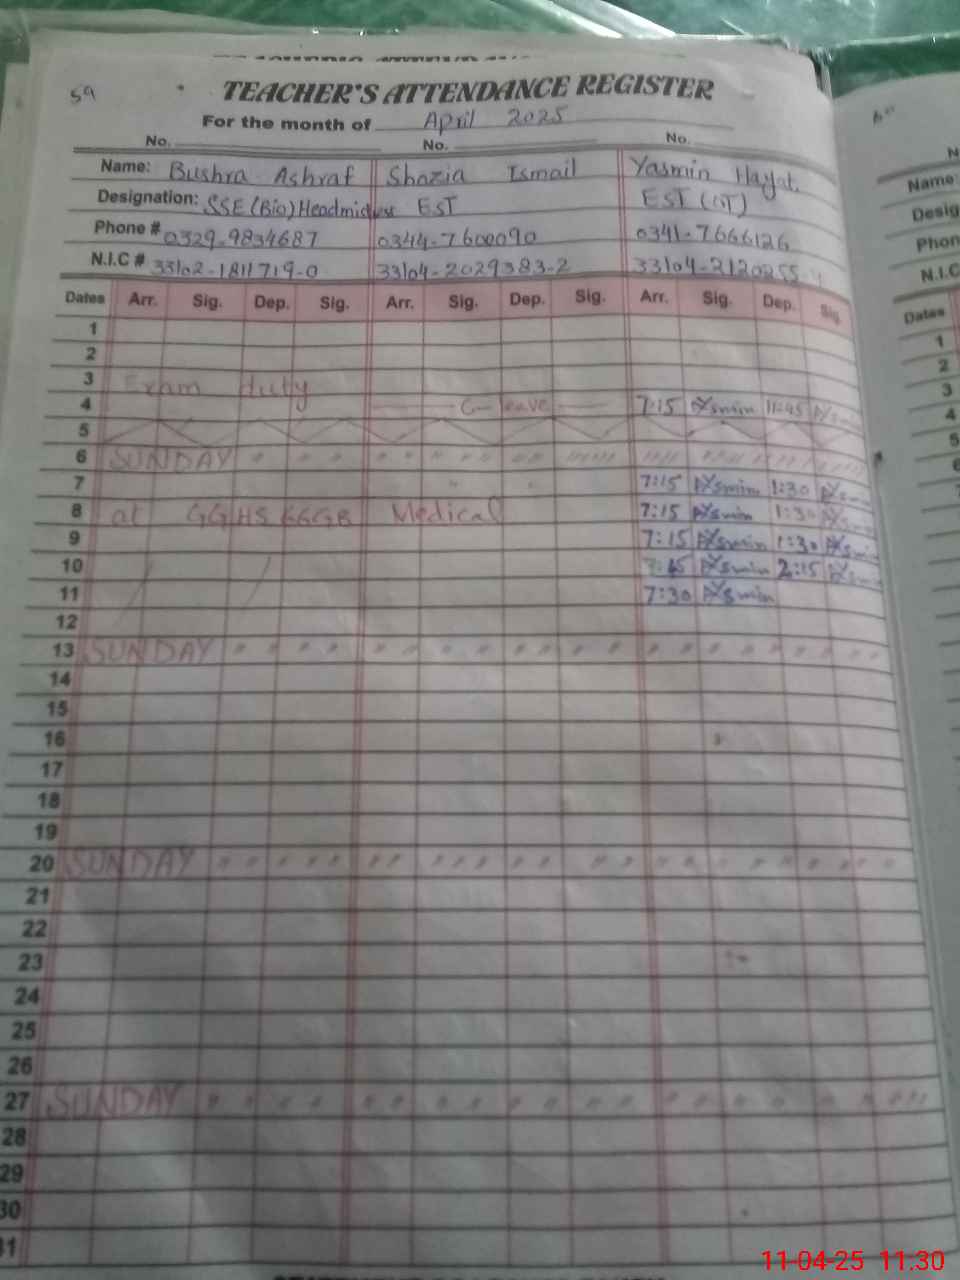 59
TEACHER'S ATTENDANCE REGISTER
For the month of April 2025
No. No. No.
Name: Bushra Ashraf Shazia Ismail Yasmin Hayat.
Designation: SSE (Bio) Headmistress EST EST (IT)
Phone # 0329-9834687 0344-7600090 0341-7666126
N.I.C # 33102-1811719-0 33104-2029383-2 33104-2120255-
Dates Arr. Sig. Dep. Sig. Arr. Sig. Dep. Sig. Arr. Sig. Dep. Sig.
1
2
3 Exam duty
4 C-leave 7:15 Yasmin 11:45
5
6 SUNDAY " " " " " " " " " " "
7 7:15 Yasmin 1:30 Yasmin
8 at GGHS 66GB Medical 7:15 Yasmin 1:30 Yasmin
9 7:15 Yasmin 1:30 Yasmin
10 Yasmin 2:15 Yasmin
11 7:30 Yasmin
12
13 SUNDAY " " " " " " " " " " "
14
15
16
17
18
19
20 SUNDAY " " " " " " " " " " "
21
22
23
24
25
26
27 SUNDAY " " " " " " " " " " "
28
29
30
31
Name:
Phon
N.I.C
Dates
1
2
3
4
5
6
11-04-25 11:30